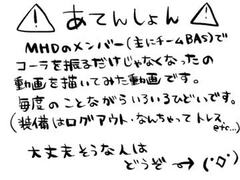 ⚠ あてんしょん ⚠
MHDのメンバー(主にチームBAS)で
コーラを振るだけじゃなくなったの
動画を描いてみた動画です。
毎度のことながらいろいろひどいです。
(装備はログアウト・なんちゃってトレス
etc...)
大丈夫そうな人は
どうぞ→(゜ロ゜)